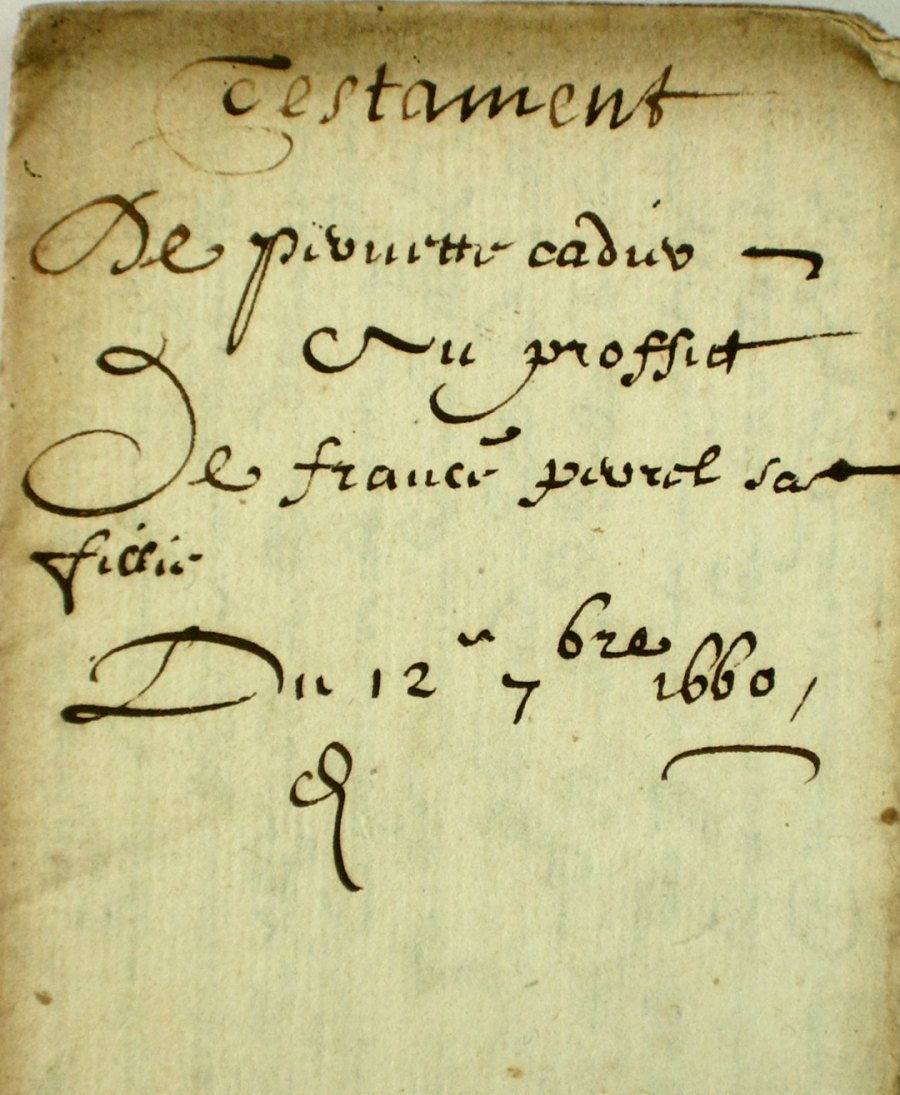 Testament
De pierrette cadier
Au proffict
De france pevrel sa
fillie
Du 12 7bre 1660